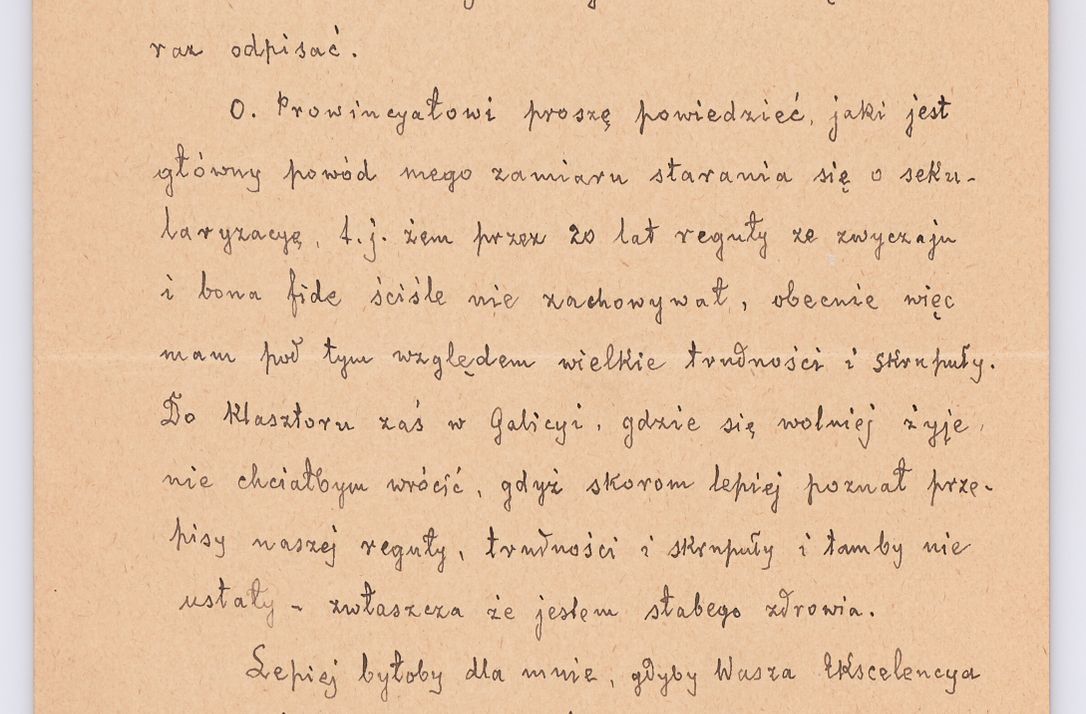 raz odpisać.
O. Prowincyałowi proszę powiedzieć, jaki jest
główny powód mego zamiaru starania się o seku-
laryzacyę, t.j. żem przez 20 lat reguły ze zwyczaju
i bona fide ściśle nie zachowywał, obecnie więc
mam pod tym względem wielkie trudności i skrupuły.
Do klasztoru zaś w Galicyi, gdzie się wolniej żyje,
nie chciałbym wrócić, gdyż skorom lepiej poznał prze-
pisy naszej reguły, trudności i skrupuły i tamby nie
ustały - zwłaszcza że jestem słabego zdrowia.
Lepiej byłoby dla mnie, gdyby Wasza Ekscelencya